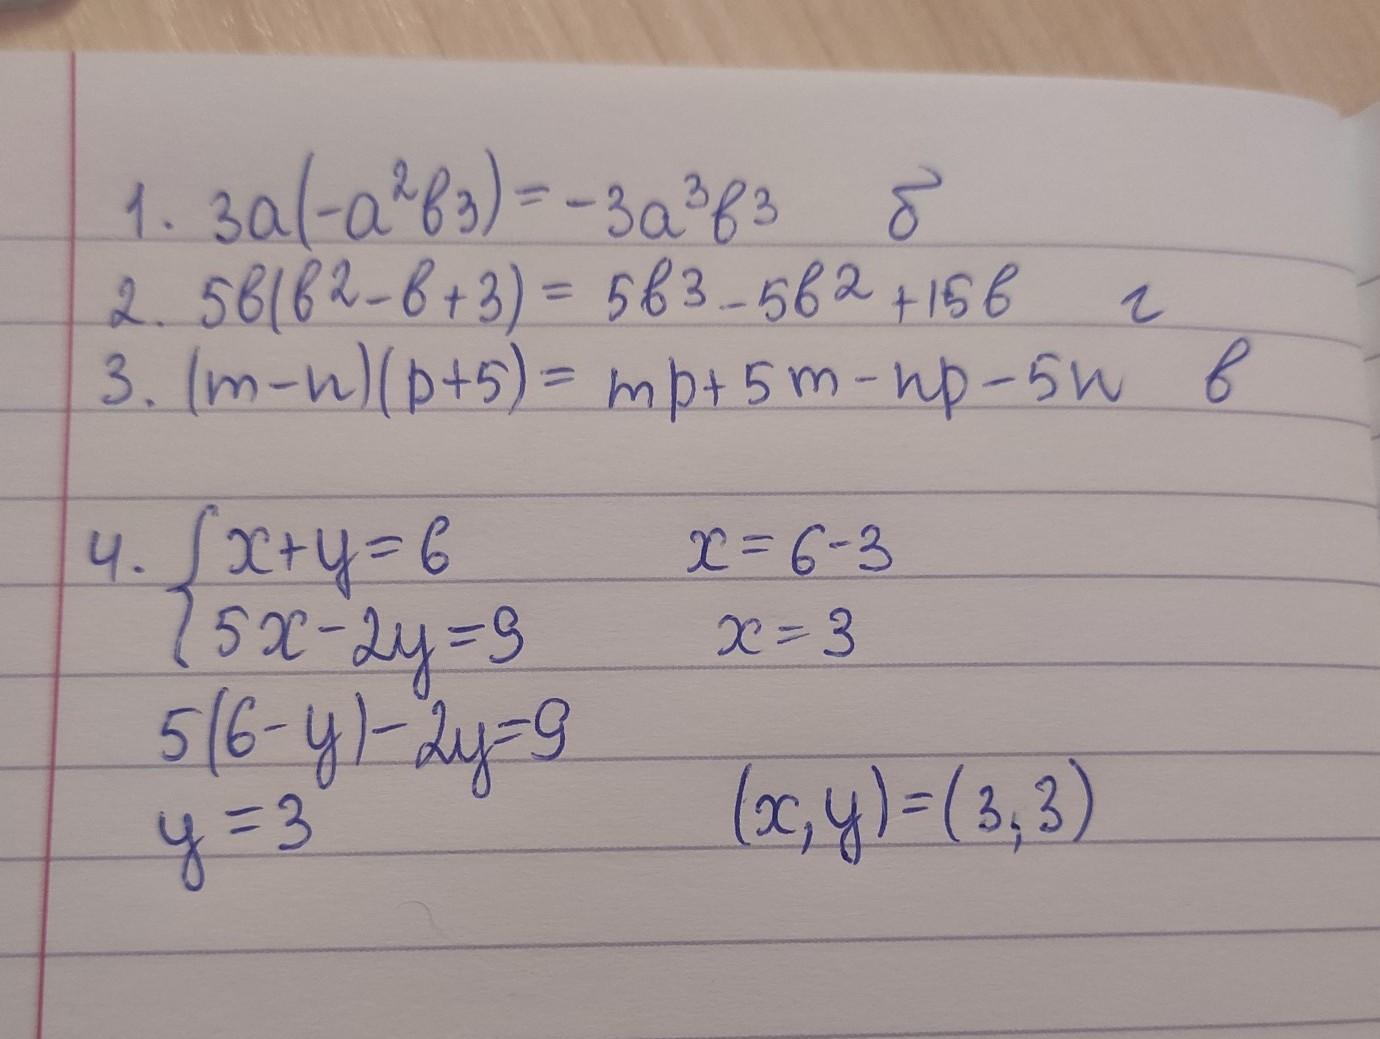 1. 3a(-a²b3) = -3a³b3 б
2. 5b(b2 - b + 3) = 5b3 - 5b2 + 15b г
3. (m - n)(p + 5) = mp + 5m - np - 5n в
4. { x + y = 6 x = 6 - 3
5x - 2y = 9 x = 3
5(6 - y) - 2y = 9
y = 3 (x, y) = (3, 3)